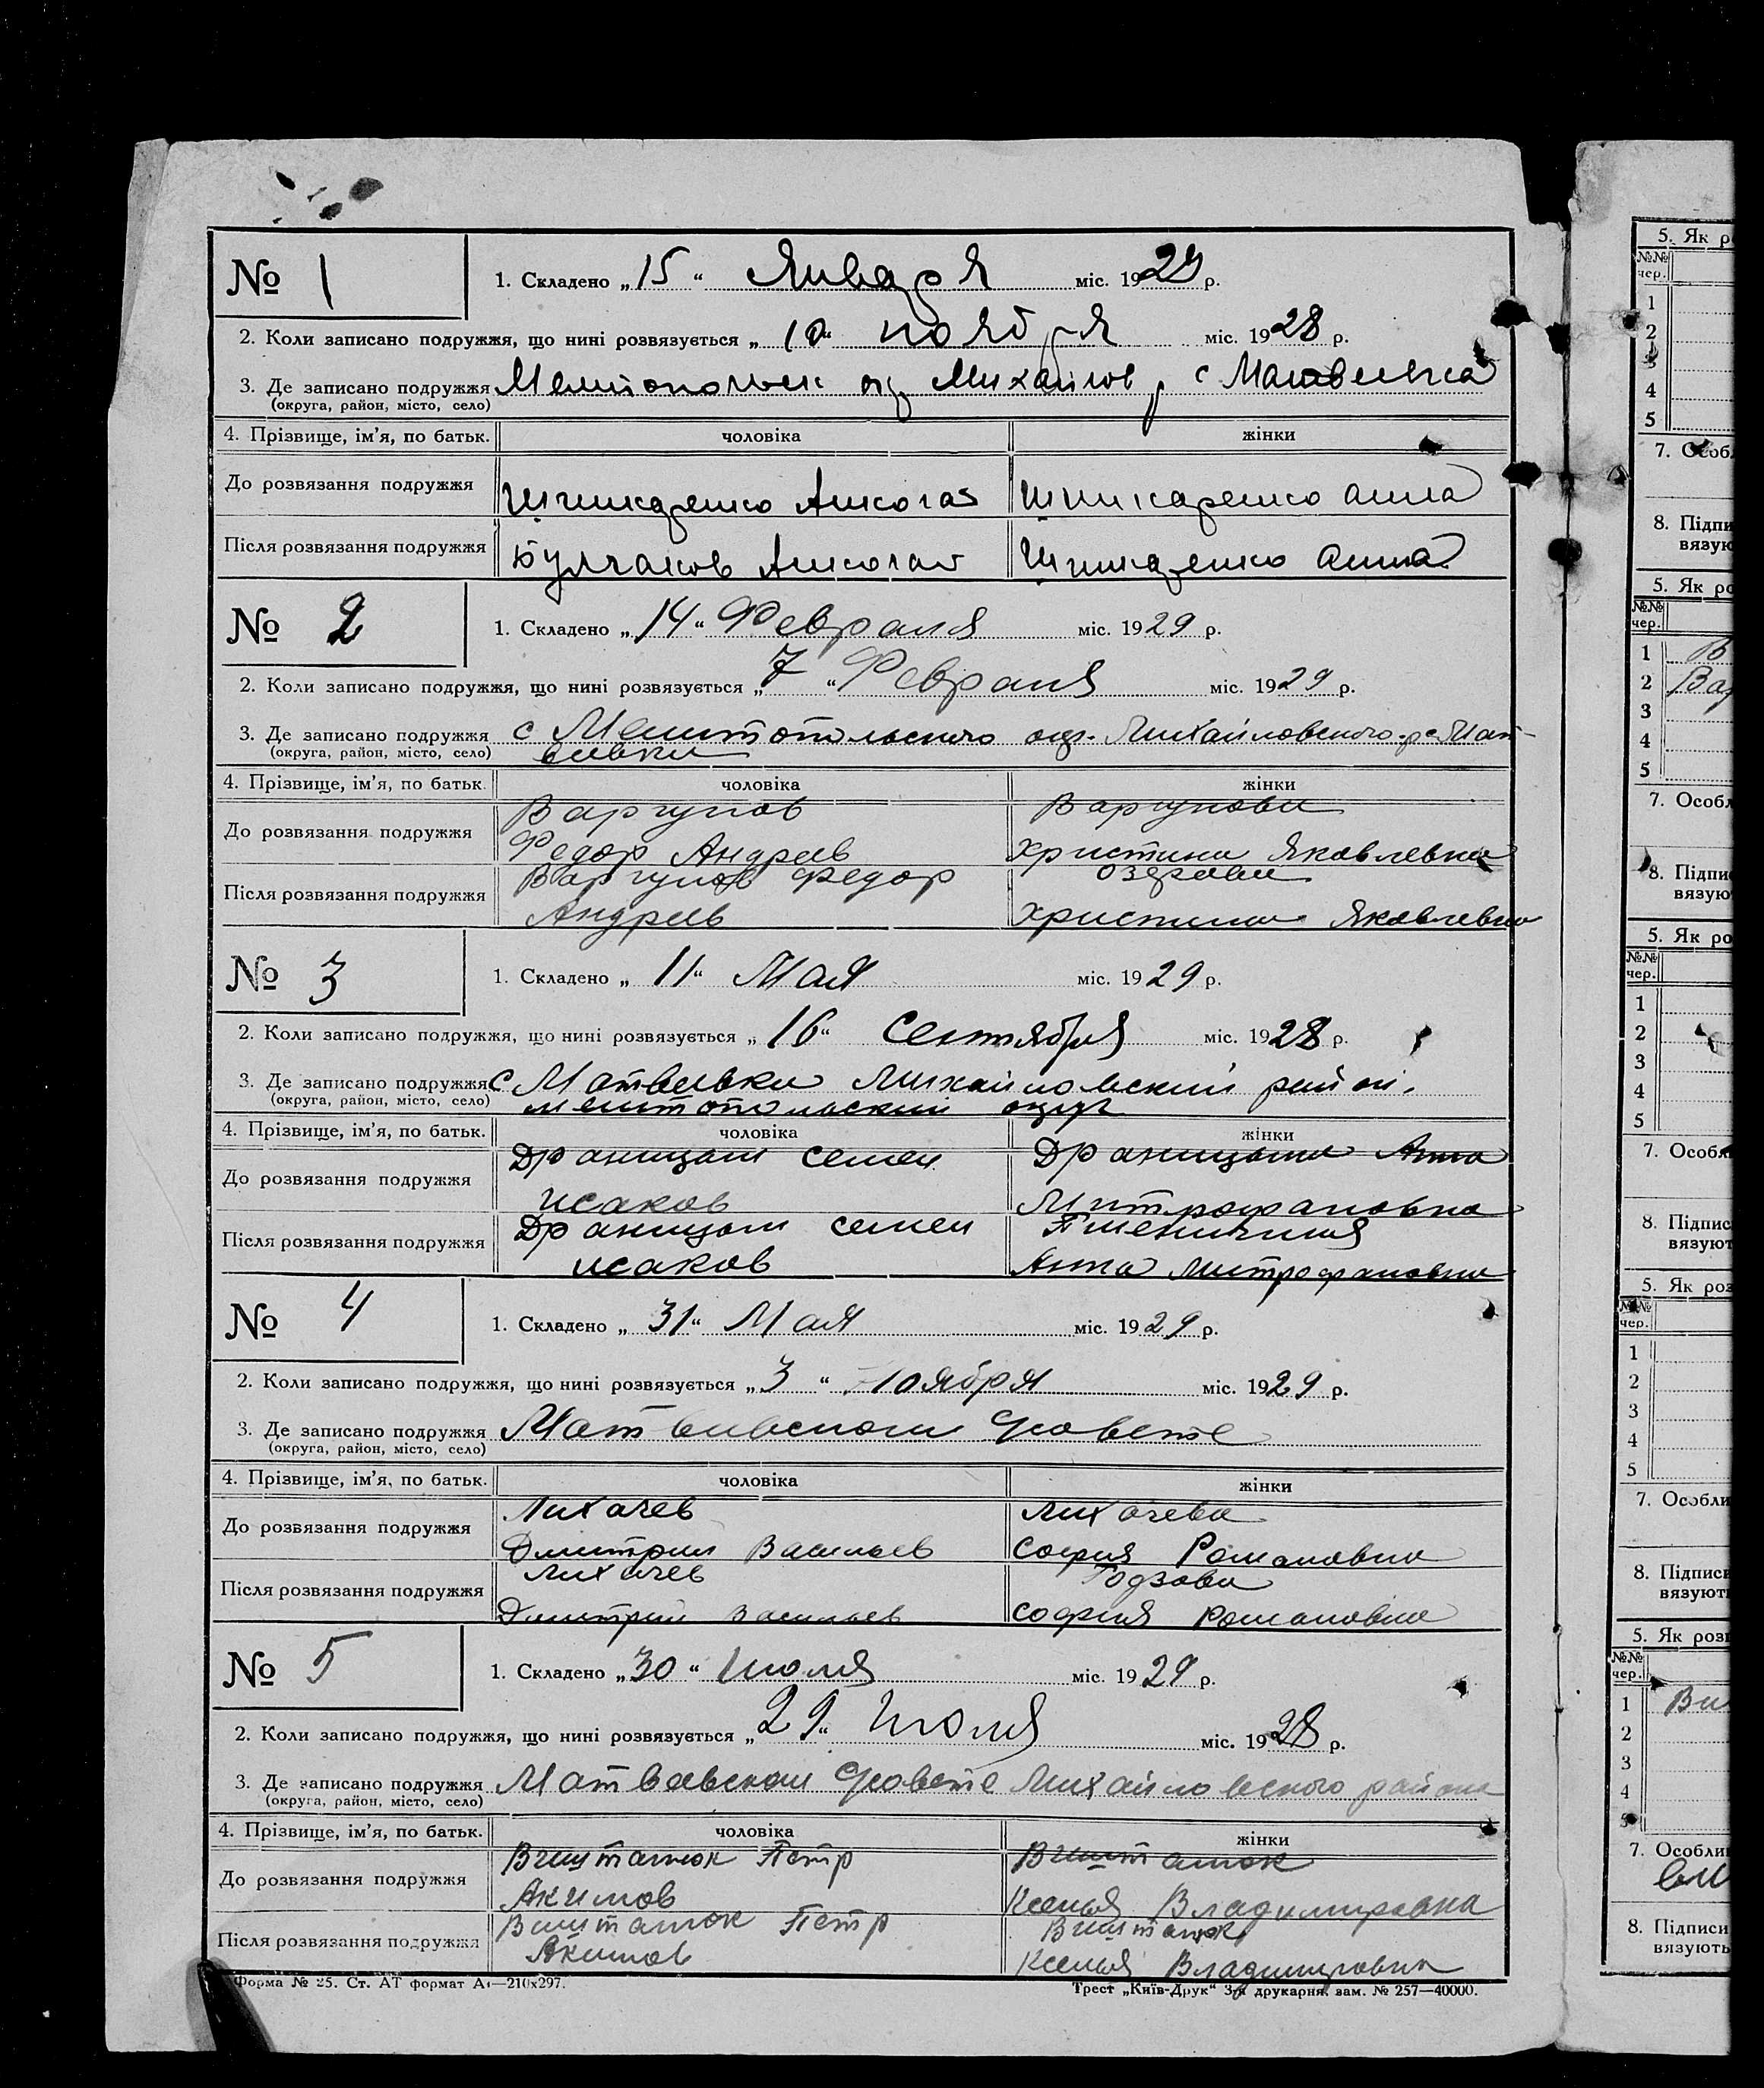 № 1
1. Складено „15“ Января міс. 1929 р.
2. Коли записано подружжя, що нині розвязується „10“ ноября міс. 1928 р.
3. Де записано подружжя Мелитопольск окр Михайлов р с Матвеевка
(округа, район, місто, село)
4. Прізвище, ім'я, по батьк. чоловіка жінки
До розвязання подружжя Шпикаренко анна
Після розвязання подружжя Анна
№ 2
1. Складено „14“ Февраля міс. 1929 р.
2. Коли записано подружжя, що нині розвязується „7“ Февраля міс. 1929 р.
3. Де записано подружжя с Мелитопольского окр. Михайловского р с Мат-
(округа, район, місто, село) веевки
4. Прізвище, ім'я, по батьк. чоловіка жінки
Варгунов Варгунова
До розвязання подружжя
Федор Андреев Христина Яковлевна
Варгунов Федор Озерова
Після розвязання подружжя
Андреев Христина Яковлевна
№ 3
1. Складено „11“ Мая міс. 1929 р.
2. Коли записано подружжя, що нині розвязується „16“ Сентября міс. 1928 р.
3. Де записано подружжя с Матвеевка Михайловский район,
(округа, район, місто, село) мелитопольский округ
4. Прізвище, ім'я, по батьк. чоловіка жінки
Семен Анна
До розвязання подружжя
исаков Митрофановна
семен Пшеничная
Після розвязання подружжя
исаков Анна митрофановна
№ 4
1. Складено „31“ Мая міс. 1929 р.
2. Коли записано подружжя, що нині розвязується „3“ Ноября міс. 1929 р.
3. Де записано подружжя Матвеевском С/совете
(округа, район, місто, село)
4. Прізвище, ім'я, по батьк. чоловіка жінки
Лихачев Лихачева
До розвязання подружжя
Дмитрий Васильев София Романовна
Лихачев Годзова
Після розвязання подружжя
Дмитрий Васильев София Романовна
№ 5
1. Складено „30“ Июля міс. 1929 р.
2. Коли записано подружжя, що нині розвязується „29“ Июля міс. 1928 р.
3. Де записано подружжя Матвеевском С/совете Михайловского района
(округа, район, місто, село)
4. Прізвище, ім'я, по батьк. чоловіка жінки
Петр
До розвязання подружжя
Акимов Ксения Владимировна
Петр
Після розвязання подружжя
Акимов Ксения Владимировна
Форма № 25. Ст. АТ формат А4—210х297.
Трест „Київ-Друк“ 3-я друкарня, зам. № 257—40000.
5. Як р
№№
чер.
1
2
3
4
5
7. Особл
8. Підпи
вязую
5. Як ро
№№
чер.
1 В
2 Вар
3
4
5
7. Особл
8. Підпи
вязую
5. Як ро
№№
чер.
1
2
3
4
5
7. Особл
8. Підпис
вязуют
5. Як роз
№№
чер.
1
2
3
4
5
7. Особли
8. Підписи
вязуют
5. Як розв
№№
чер.
1
2
3
4
5
7. Особли
8. Підписи
вязують